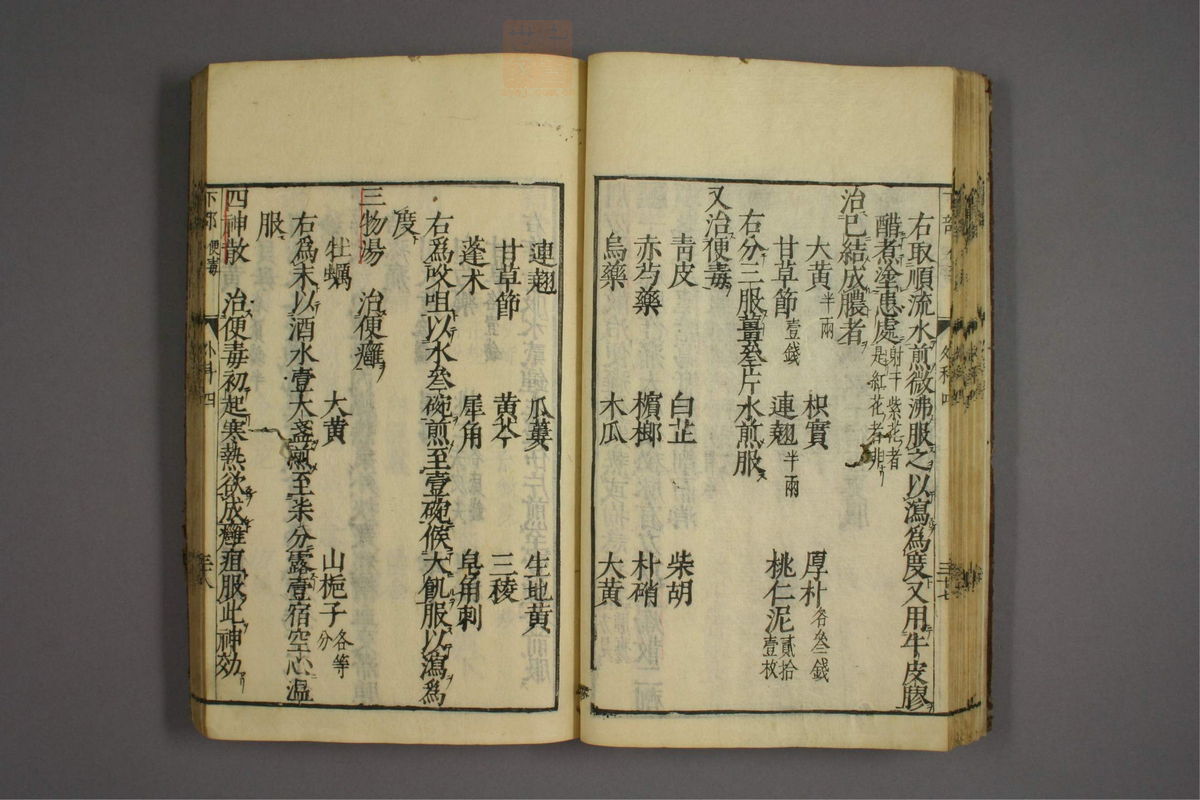 右取順流水煎微沸服之以瀉為度又用牛皮膠
醋者塗患處射干紫花者是紅花者非
治已結成膿者
大黃半兩 枳實 厚朴各叄錢
甘草節壹錢 連翹半兩 桃仁泥貳拾壹枚
右分三服薑叄片水煎服
又治便毒
靑皮 白芷 柴胡
赤芍藥 檳榔 朴硝
烏藥 木瓜 大黃
連翹 瓜蔞 生地黃
甘草節 黃芩 三稜
蓬朮 犀角 皂角刺
右為㕮咀以水叄碗煎至壹碗候大飢服以瀉為
度
三物湯 治便癰
牡蠣 大黃 山梔子各等分
右為末以酒水壹大盞煎至柒分露壹宿空心溫
服
四神散 治便毒初起寒熱欲成癰疽服此神効
下部 便毒 外科四 三八